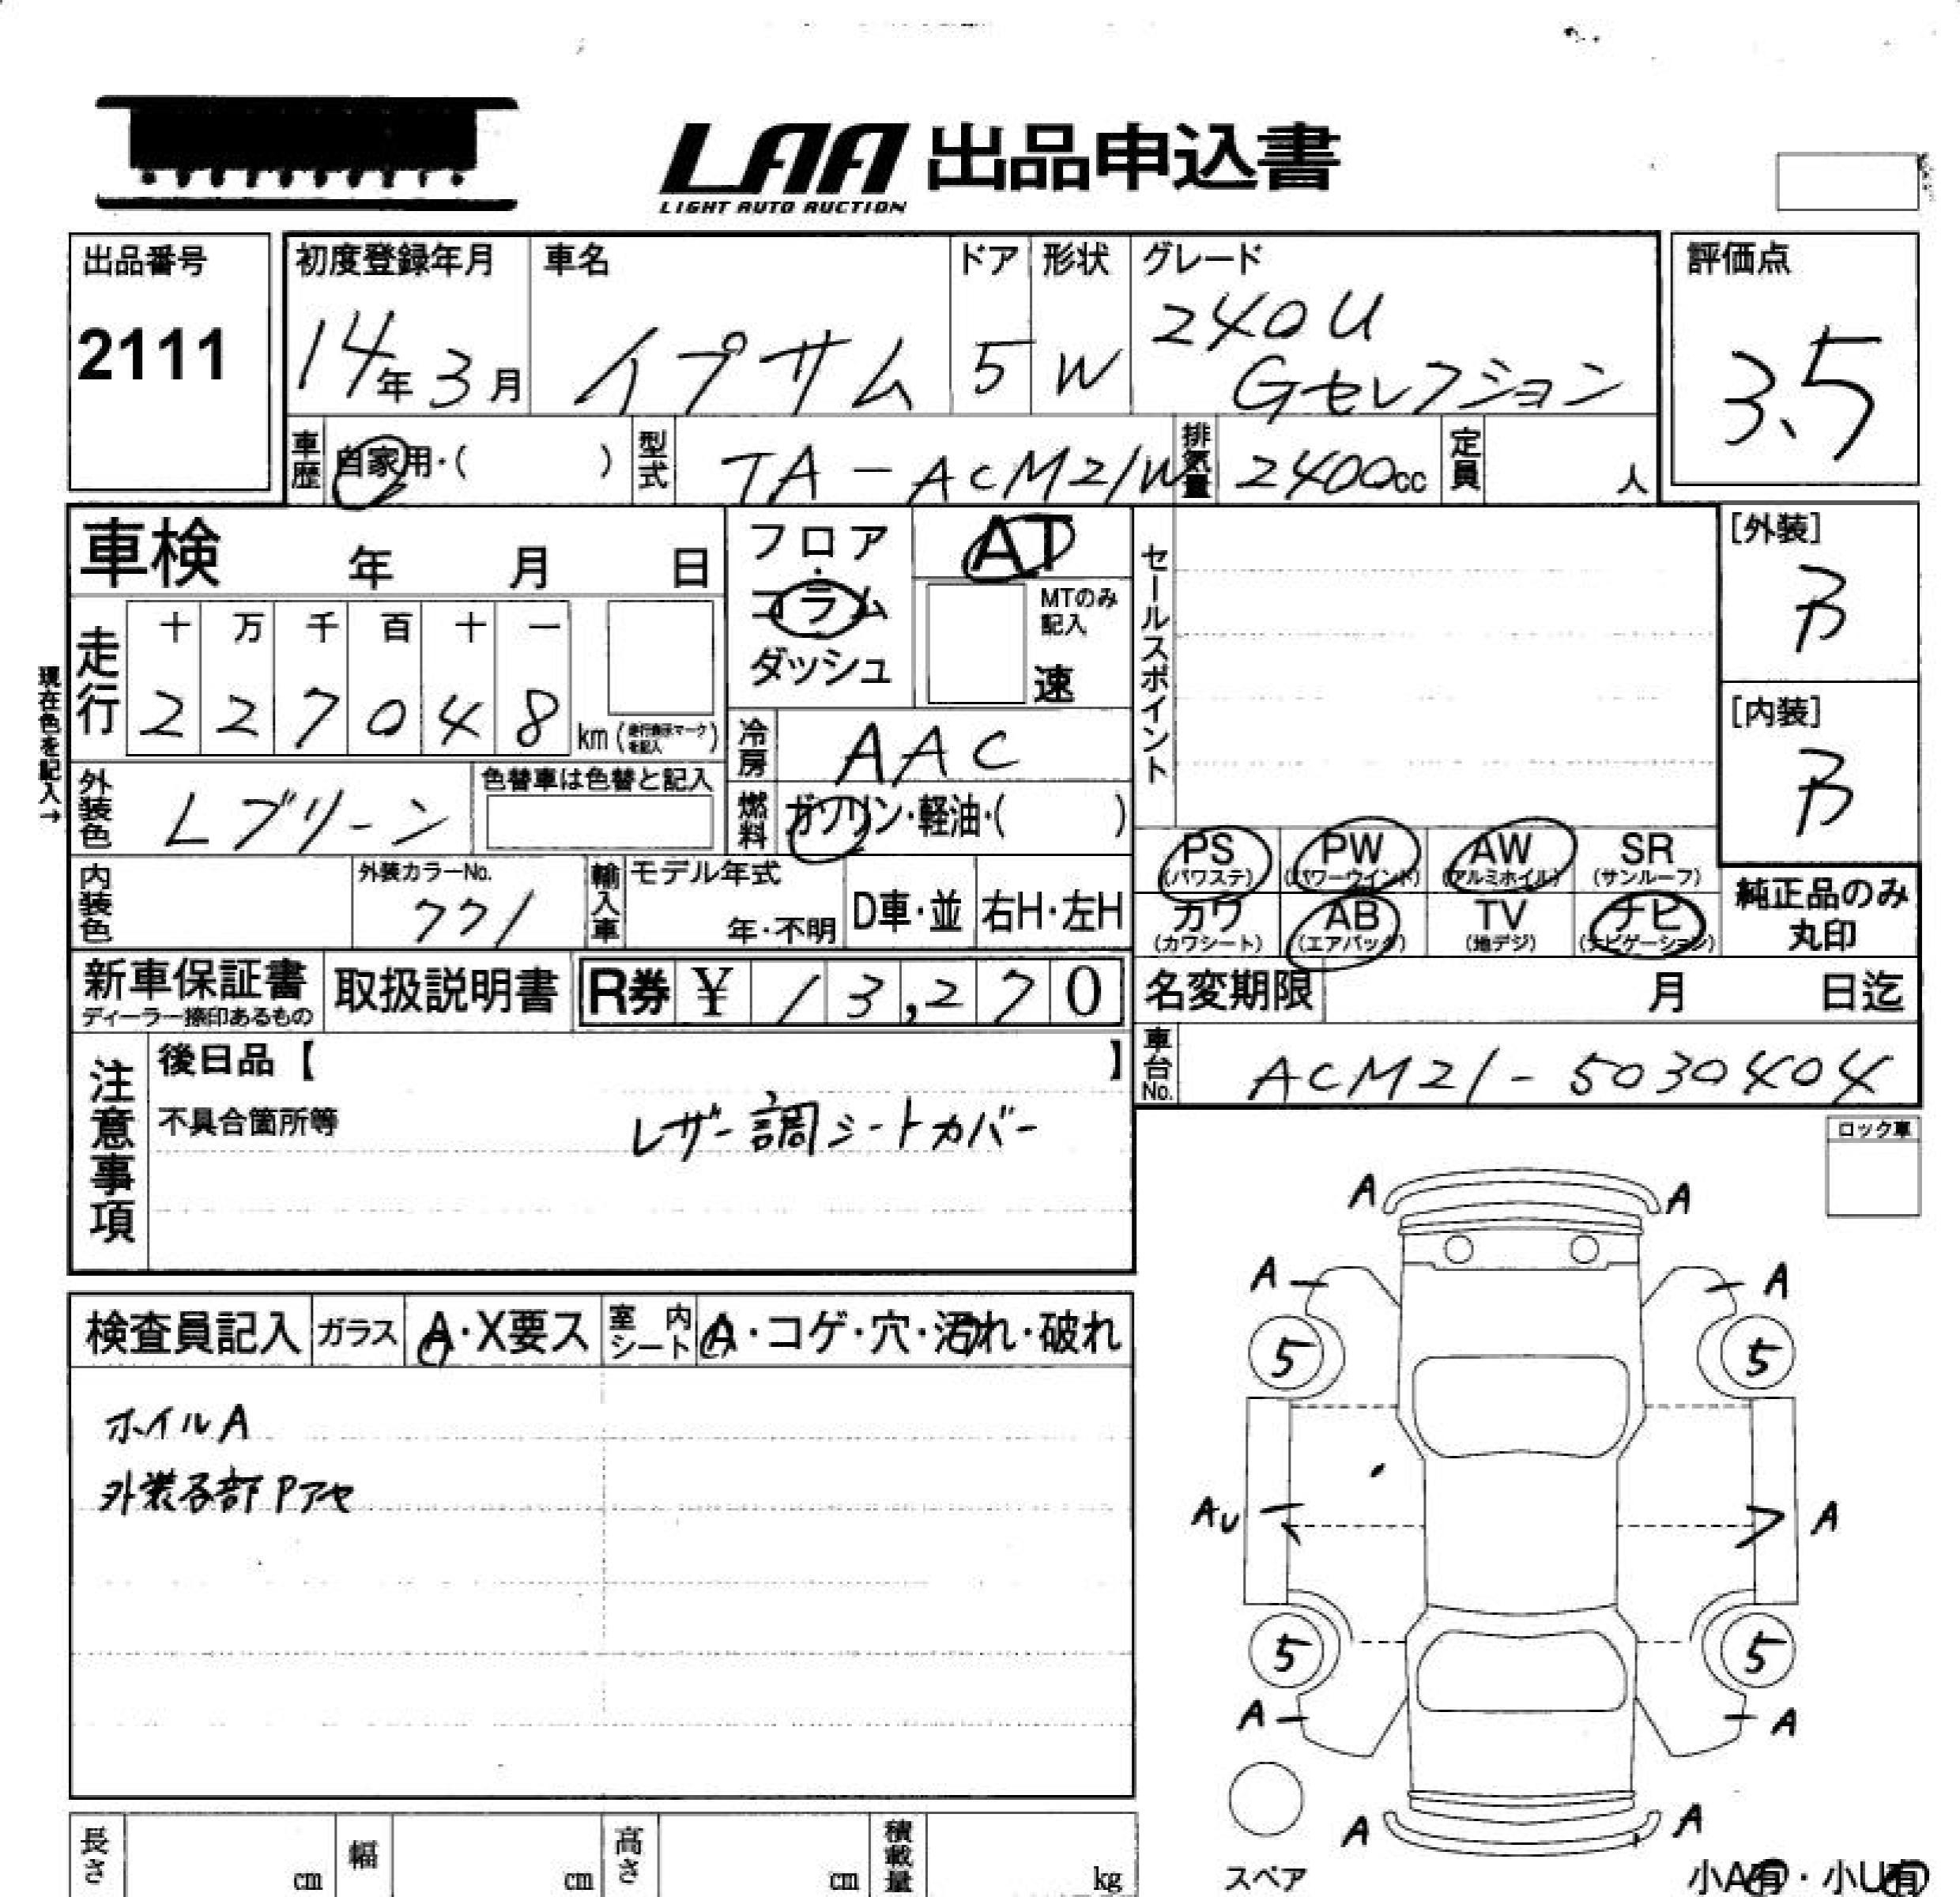 LAA 出品申込書
LIGHT AUTO AUCTION
出品番号
2111
初度登録年月
14年3月
車名
イプサム
ドア
5
形状
W
グレード
240U
Gセレクション
評価点
3.5
車歴
自家用・( )
型式
TA-ACM21W
排気量
2400cc
定員
人
車検 年 月 日
フロア
・
コラム
ダッシュ
AT
MTのみ
記入
速
セールスポイント
[外装]
B
[内装]
B
現在色を記入→
走行
十 万 千 百 十 一
2 2 7 0 4 8
km(走行表示マークを記入)
冷房
AAC
外装色
Lブリーン
色替車は色替と記入
燃料
ガソリン・軽油・( )
PS
(パワステ)
PW
(パワーウインド)
AW
(アルミホイル)
SR
(サンルーフ)
カワ
(カワシート)
AB
(エアバック)
TV
(地デジ)
ナビ
(ナビゲーション)
純正品のみ
丸印
内装色
外装カラーNo.
771
輸入車
モデル年式
年・不明
D車・並
右H・左H
新車保証書
ディーラー捺印あるもの
取扱説明書
R券 ¥ 13,270
名変期限 月 日迄
車台No.
ACM21-5030404
注意事項
後日品【 】
不具合箇所等
レザー調シートカバー
ロック車
検査員記入
ガラス
A・X要ス
室内シート
A・コゲ・穴・汚れ・破れ
ホイルA
外装各部Pアセ
A A
A A
5 5
AU A
5 5
A A
A A
スペア
小A有・小U有
長さ cm
幅 cm
高さ cm
積載量 kg